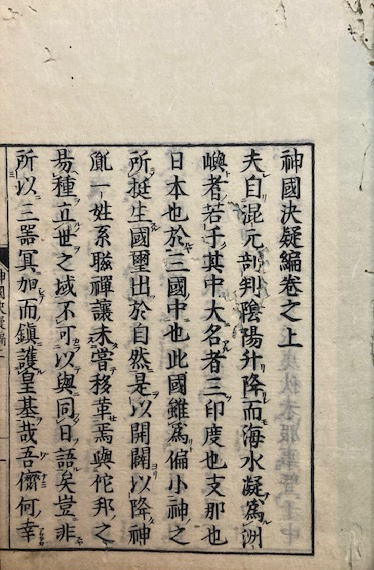 神國決疑編卷之上
夫自混元剖判陰陽升降而海水凝爲洲
嶼者若干其中大名者三印度也支那也
日本也於三國中也此國雖爲偏小神之
所挺生國璽出於自然是以開闢以降神
胤一姓系聯禪讓未嘗移革焉與佗邦之
易種立世之域不可以與同日語矣豈非
所以三器冥加而鎮護皇基哉吾儕何幸